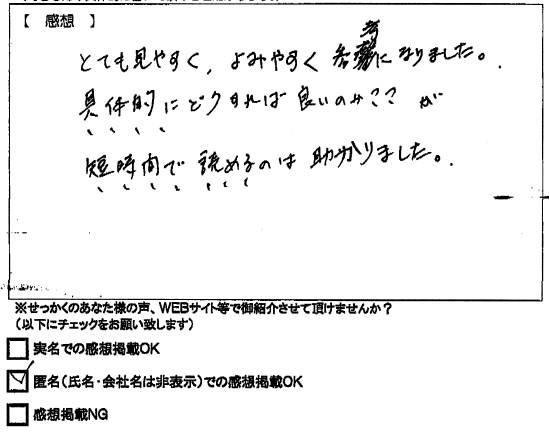 【 感想 】
とても見やすく、よみやすく参考になりました。
具体的にどうすれば良いのかここが
短時間で読めるのは助かりました。
※せっかくのあなた様の声、WEBサイト等で御紹介させて頂けませんか?
(以下にチェックをお願い致します)
実名での感想掲載OK
匿名(氏名・会社名は非表示)での感想掲載OK
感想掲載NG